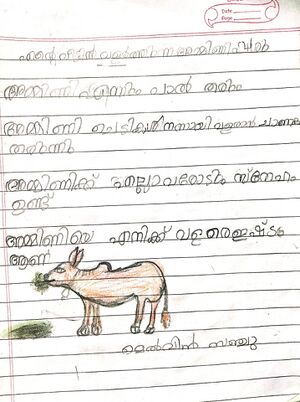 Date
Page
എന്റെ വീട്ടിൽ വളർത്തുന്ന അമ്മിണിപ്പശു
അമ്മിണി എനിക്കും പാൽ തരും
അമ്മിണി ചെടികൾ നന്നായി വളരാൻ ചാണകം
തരുന്നു
അമ്മിണിക്ക് എല്ലാവരോടും സ്നേഹം
ഉണ്ട്
അമ്മിണിയെ എനിക്ക് വളരെ ഇഷ്ടം
ആണ്
മെൽവിൻ സഞ്ചു